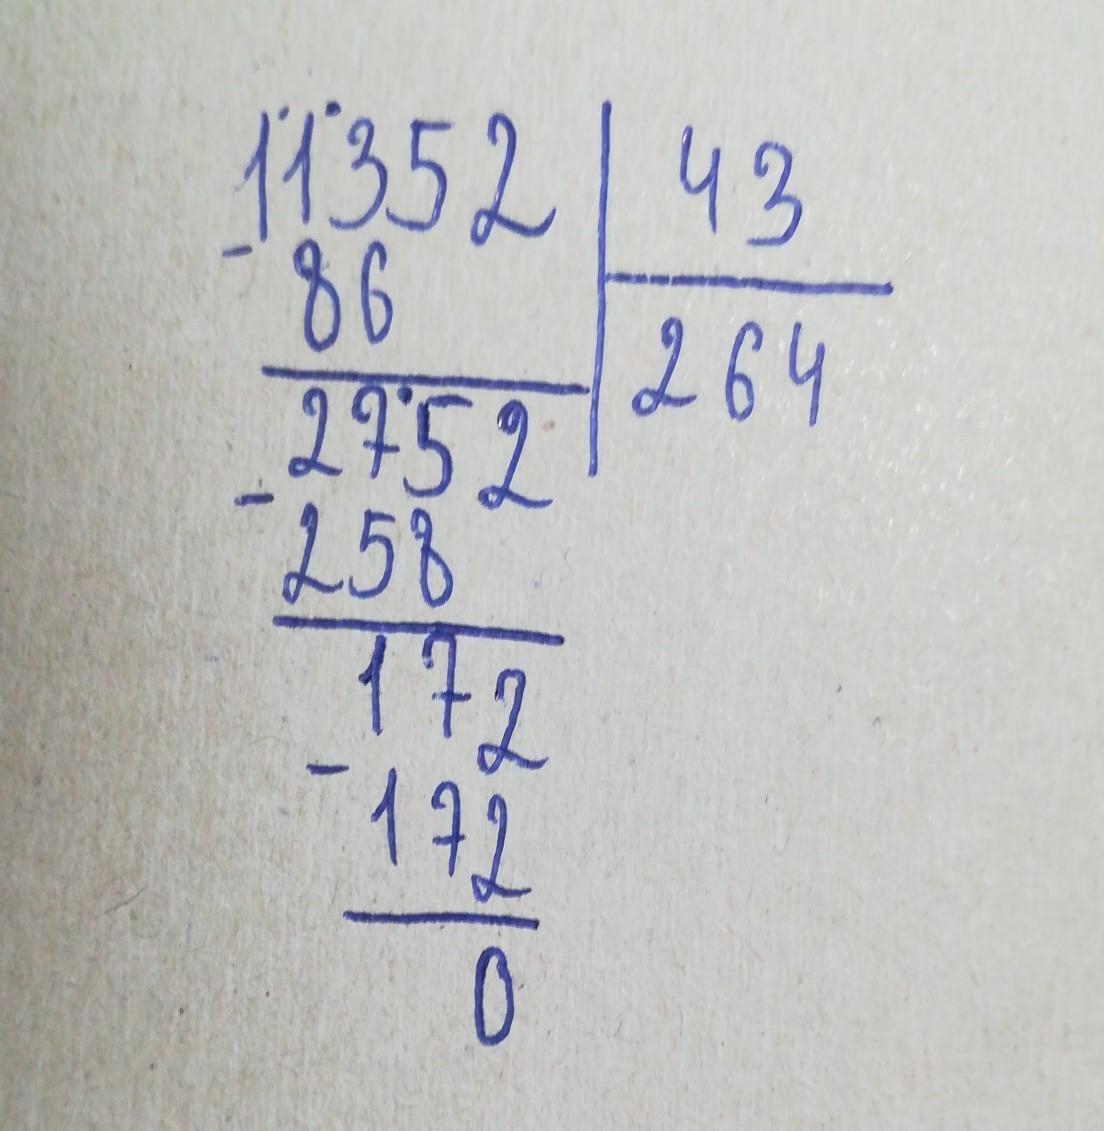 11352 43
- 86 264
2752
- 258
172
- 172
0